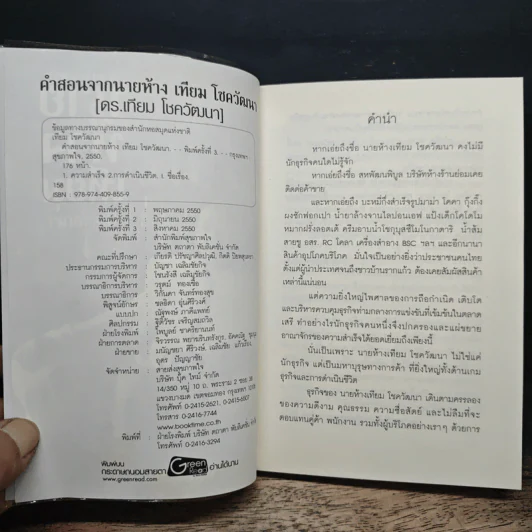 คำสอนจากนายห้าง เทียม โชควัฒนา
[ดร.เทียม โชควัฒนา]
ข้อมูลทางบรรณานุกรมของสำนักหอสมุดแห่งชาติ
เทียม โชควัฒนา.
คำสอนจากนายห้าง เทียม โชควัฒนา. - - พิมพ์ครั้งที่ 3. - - กรุงเทพฯ
สุขภาพใจ, 2550.
176 หน้า.
1. ความสำเร็จ 2.การดำเนินชีวิต. I. ชื่อเรื่อง.
158
ISBN : 978-974-409-855-9
พิมพ์ครั้งที่ 1 : พฤษภาคม 2550
พิมพ์ครั้งที่ 2 : มิถุนายน 2550
พิมพ์ครั้งที่ 3 : สิงหาคม 2550
จัดพิมพ์ : สำนักพิมพ์สุขภาพใจ
บริษัท ตถาตา พับลิเคชั่น จำกัด
คณะที่ปรึกษา : เกียรติ ปรัชญาศิลปวุฒิ,
ประธานกรรมการบริหาร : บัญชา เฉลิมชัยกิจ
กรรมการผู้จัดการ : โชนรังสี เฉลิมชัยกิจ
บรรณาธิการบริหาร : วรุตม์ ทองเชื้อ
บรรณาธิการ : วิกันดา จันทร์ทองสุข
พิสูจน์อักษร : ชลธิดา
แบบปก :
ศิลปกรรม :
ฝ่ายโรงพิมพ์ : ไพบูลย์
ฝ่ายการตลาด : จิรวรรณ
ฝ่ายขาย : เฉลิมชัย
อุดร ปัญญาชัย
จัดจำหน่าย : สายส่งสุขภาพใจ
บริษัท บุ๊ค ไทม์ จำกัด
14/350 หมู่ 10 ถ. พระราม 2
แขวงบางมด เขตจอมทอง กรุงเทพฯ
โทรศัพท์ 0-2415-2621,
โทรสาร 0-2416-7744
www.booktime.co.th
พิมพ์ที่ : ฝ่ายโรงพิมพ์ บริษัท ตถาตา พับลิเคชั่น จำกัด
โทรศัพท์ 0-2416-3294
พิมพ์บน
กระดาษถนอมสายตา Green Read อ่านได้นาน
www.greenread.com
คำนำ
หากเอ่ยถึงชื่อ นายห้างเทียม โชควัฒนา คงไม่มี
นักธุรกิจคนใดไม่รู้จัก
หากเอ่ยถึงชื่อ สหพัฒนพิบูล บริษัทห้างร้านย่อมเคย
ติดต่อค้าขาย
และหากเอ่ยถึง บะหมี่กึ่งสำเร็จรูปมาม่า โคคา กุ๊งกิ๊ง
ผงซักฟอกเปา น้ำยาล้างจานไลปอนเอฟ แป้งเด็กโคโดโม
หมากฝรั่งลอตเต้ ครีมอาบน้ำโชกุบุสซึโมโนกาตาริ น้ำส้ม
สายชู อสร. RC โคลา เครื่องสำอาง BSC ฯลฯ และอีกนานา
สินค้าอุปโภคบริโภค มั่นใจเป็นอย่างยิ่งว่าประชาชนคนไทย
ตั้งแต่ผู้นำประเทศจนถึงชาวบ้านรากแก้ว ต้องเคยสัมผัสสินค้า
เหล่านี้แน่นอน
แต่ความยิ่งใหญ่ไพศาลของการถือกำเนิด เติบโต
และบริหารควบคุมธุรกิจท่ามกลางการแข่งขันที่เข้มข้นในตลาด
เสรี ทำอย่างไรนักธุรกิจคนหนึ่งจึงปกครองและแผ่ขยาย
อาณาจักรของความสำเร็จได้ยอดเยี่ยมถึงเพียงนี้
นั่นเป็นเพราะ นายห้างเทียม โชควัฒนา ไม่ใช่แค่
นักธุรกิจ แต่เป็นมหาบุรุษทางการค้า ที่ยิ่งใหญ่ทั้งด้านเกม
ธุรกิจและการดำเนินชีวิต
ธุรกิจของ นายห้างเทียม โชควัฒนา เดินตามครรลอง
ของความดีงาม คุณธรรม ความซื่อสัตย์ และไม่ลืมที่จะ
ตอบแทนคู่ค้า พนักงาน รวมทั้งผู้บริโภคอย่างเราๆ ด้วยการ